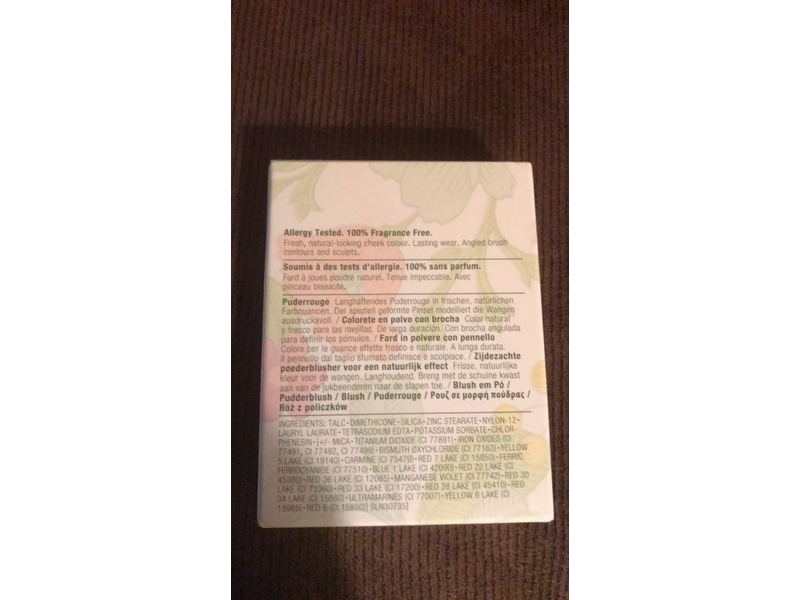 Allergy Tested. 100% Fragrance Free.
Fresh, natural-looking cheek colour. Lasting wear. Angled brush
contours and sculpts.
Soumis à des tests d'allergie. 100% sans parfum.
Fard à joues poudre naturel. Tenue impeccable. Avec
pinceau biseauté.
Puderrouge Langhaftendes Puderrouge in frischen, natürlichen
Farbnuancen. Der speziell geformte Pinsel modelliert die Wangen
ausdrucksvoll. / Colorete en polvo con brocha Color natural
y fresco para las mejillas. De larga duración. Con brocha angulada
para definir los pómulos. / Fard in polvere con pennello
Colore per le guance effetto fresco e naturale. A lunga durata.
Il pennello dal taglio sfumato definisce e scolpisce. / Zijdezachte
poederblusher voor een natuurlijk effect Frisse, natuurlijke
kleur voor de wangen. Langhoudend. Breng met de schuine kwast
aan van de jukbeenderen naar de slapen toe. / Blush em Pó /
Pudderblush / Blush / Puderrouge / Ρουζ σε μορφή πούδρας /
Róż z policzków
INGREDIENTS: TALC • DIMETHICONE • SILICA • ZINC STEARATE • NYLON-12 •
LAURYL LAURATE • TETRASODIUM EDTA • POTASSIUM SORBATE • CHLOR-
PHENESIN • [+/- MICA • TITANIUM DIOXIDE (CI 77891) • IRON OXIDES (CI
77491, CI 77492, CI 77499) • BISMUTH OXYCHLORIDE (CI 77163) • YELLOW
5 LAKE (CI 19140) • CARMINE (CI 75470) • RED 7 LAKE (CI 15850) • FERRIC
FERROCYANIDE (CI 77510) • BLUE 1 LAKE (CI 42090) • RED 22 LAKE (CI
45380) • RED 36 LAKE (CI 12085) • MANGANESE VIOLET (CI 77742) • RED 30
LAKE (CI 73360) • RED 33 LAKE (CI 17200) • RED 28 LAKE (CI 45410) • RED
34 LAKE (CI 15880) • ULTRAMARINES (CI 77007) • YELLOW 6 LAKE (CI
15985) • RED 6 (CI 15850)] [ILN30735]